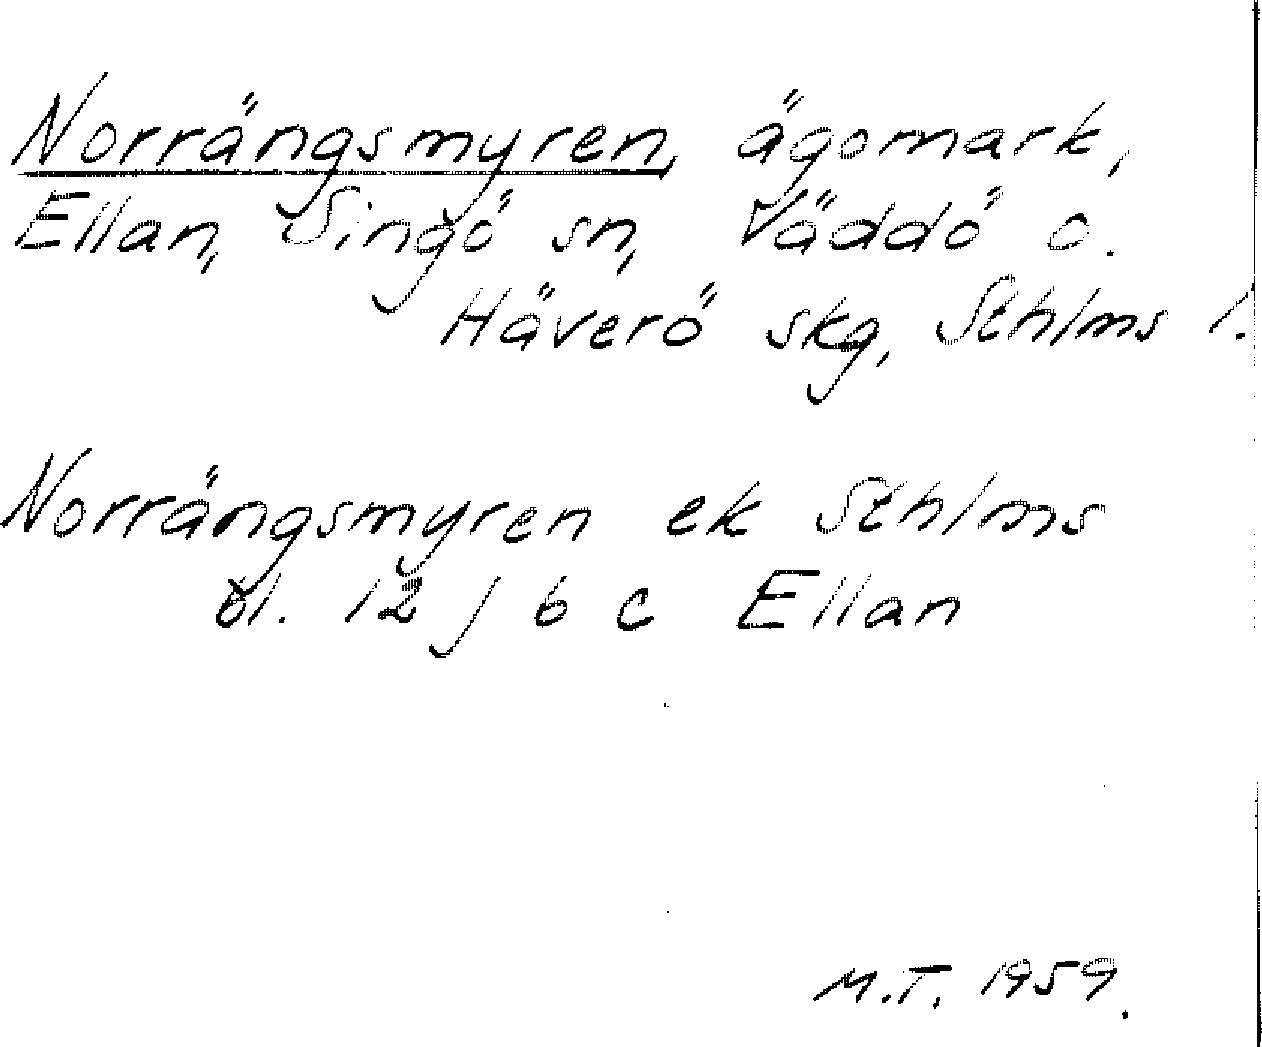 Norrängsmyren, ägomark,
Ellan, Singö sn, Väddö o.
Häverö skg, Sthlms l.
Norrängsmyren ek Sthlms
bl. 12 j 6 c Ellan
M.T. 1959.